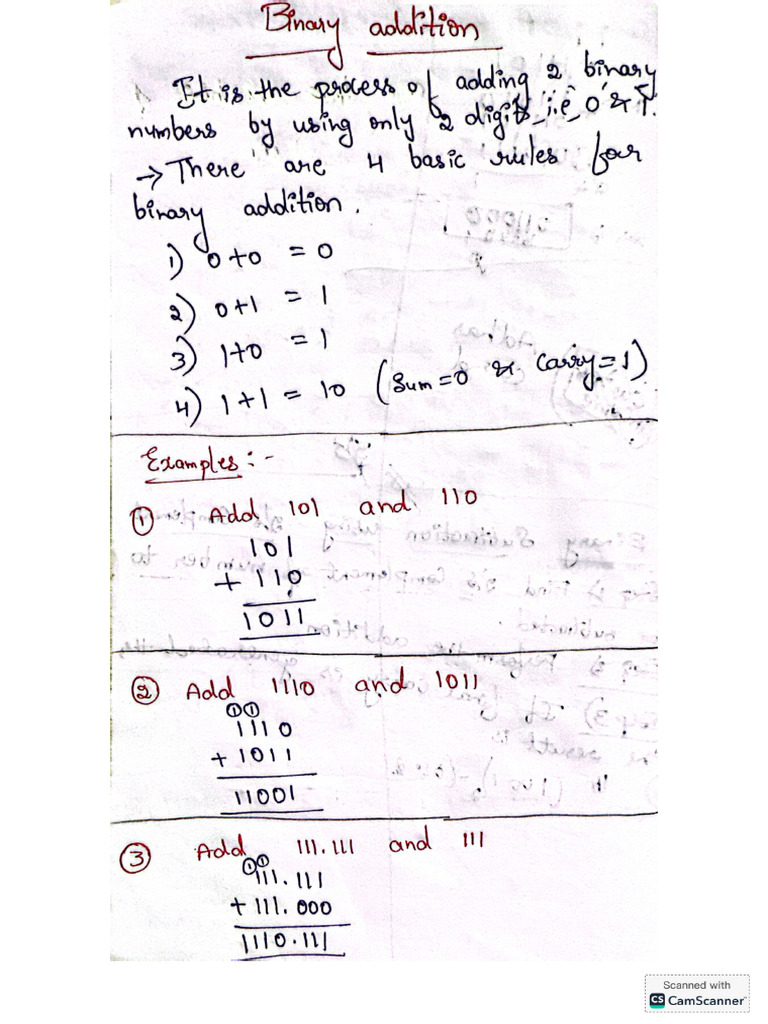 Binary addition
It is the process of adding 2 binary
numbers by using only 2 digits i.e 0 & 1.
→ There are 4 basic rules for
binary addition.
1) 0+0 = 0
2) 0+1 = 1
3) 1+0 = 1
4) 1+1 = 10 (Sum=0 & Carry=1)
Examples:-
① Add 101 and 110
101
+ 110
1011
② Add 1110 and 1011
①①
1110
+ 1011
11001
③ Add 111.111 and 111
①①
111.111
+ 111.000
1110.111
Scanned with
CS CamScanner